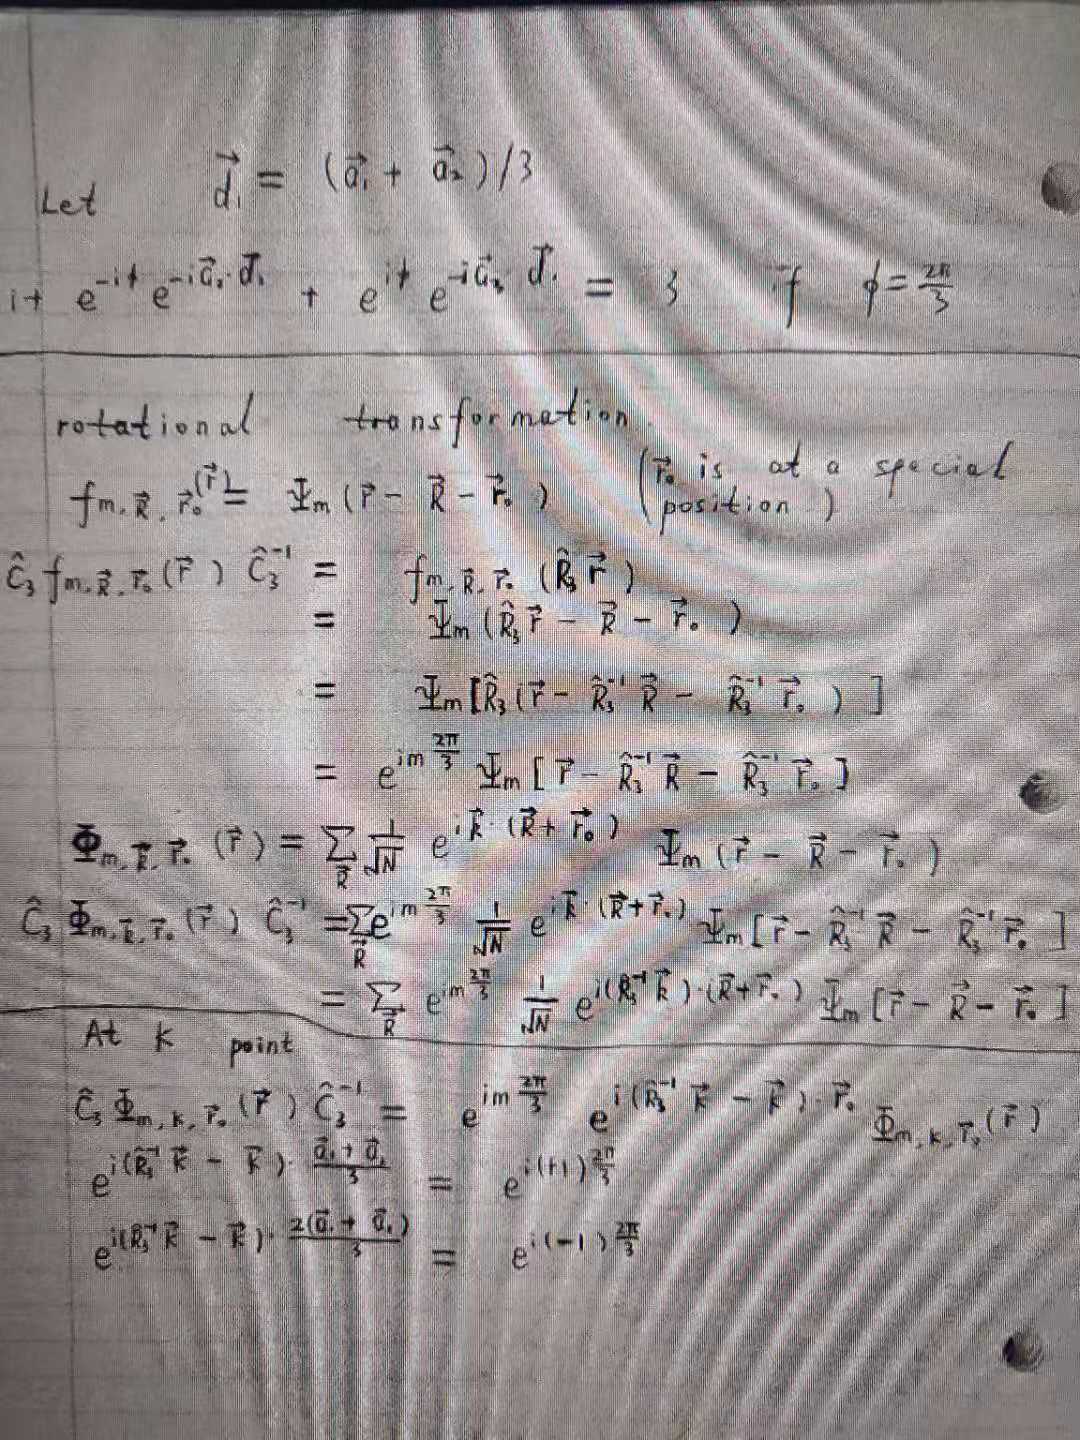 Let d⃗₁ = (a⃗₁ + a⃗₂)/3
1+ e^{-iϕ} e^{-ia⃗₁·d⃗₁} + e^{iϕ} e^{-ia⃗₂·d⃗₁} = 3 if ϕ = 2π/3
rotational transformation
f_{m,R⃗,r⃗₀}(r⃗) = Ψ_m(r⃗ - R⃗ - r⃗₀) (r⃗₀ is at a special position)
Ĉ₃ f_{m,R⃗,r⃗₀}(r⃗) Ĉ₃⁻¹ = f_{m,R⃗,r⃗₀}(R̂₃ r⃗)
= Ψ_m(R̂₃ r⃗ - R⃗ - r⃗₀)
= Ψ_m[R̂₃(r⃗ - R̂₃⁻¹ R⃗ - R̂₃⁻¹ r⃗₀)]
= e^{im 2π/3} Ψ_m[r⃗ - R̂₃⁻¹ R⃗ - R̂₃⁻¹ r⃗₀]
Φ_{m,k⃗,r⃗₀}(r⃗) = Σ_{R⃗} 1/√N e^{ik⃗·(R⃗+r⃗₀)} Ψ_m(r⃗ - R⃗ - r⃗₀)
Ĉ₃ Φ_{m,k⃗,r⃗₀}(r⃗) Ĉ₃⁻¹ = Σ_{R⃗} e^{im 2π/3} 1/√N e^{ik⃗·(R⃗+r⃗₀)} Ψ_m[r⃗ - R̂₃⁻¹ R⃗ - R̂₃⁻¹ r⃗₀]
= Σ_{R⃗} e^{im 2π/3} 1/√N e^{i(R̂₃⁻¹ k⃗)·(R⃗+r⃗₀)} Ψ_m[r⃗ - R⃗ - r⃗₀]
At K point
Ĉ₃ Φ_{m,K,r⃗₀}(r⃗) Ĉ₃⁻¹ = e^{im 2π/3} e^{i(R̂₃⁻¹ K⃗ - K⃗)·r⃗₀} Φ_{m,K,r⃗₀}(r⃗)
e^{i(R̂₃⁻¹ K⃗ - K⃗)·(a⃗₁+a⃗₂)/3} = e^{i(+1) 2π/3}
e^{i(R̂₃⁻¹ K⃗ - K⃗)·2(a⃗₁+a⃗₂)/3} = e^{i(-1) 2π/3}